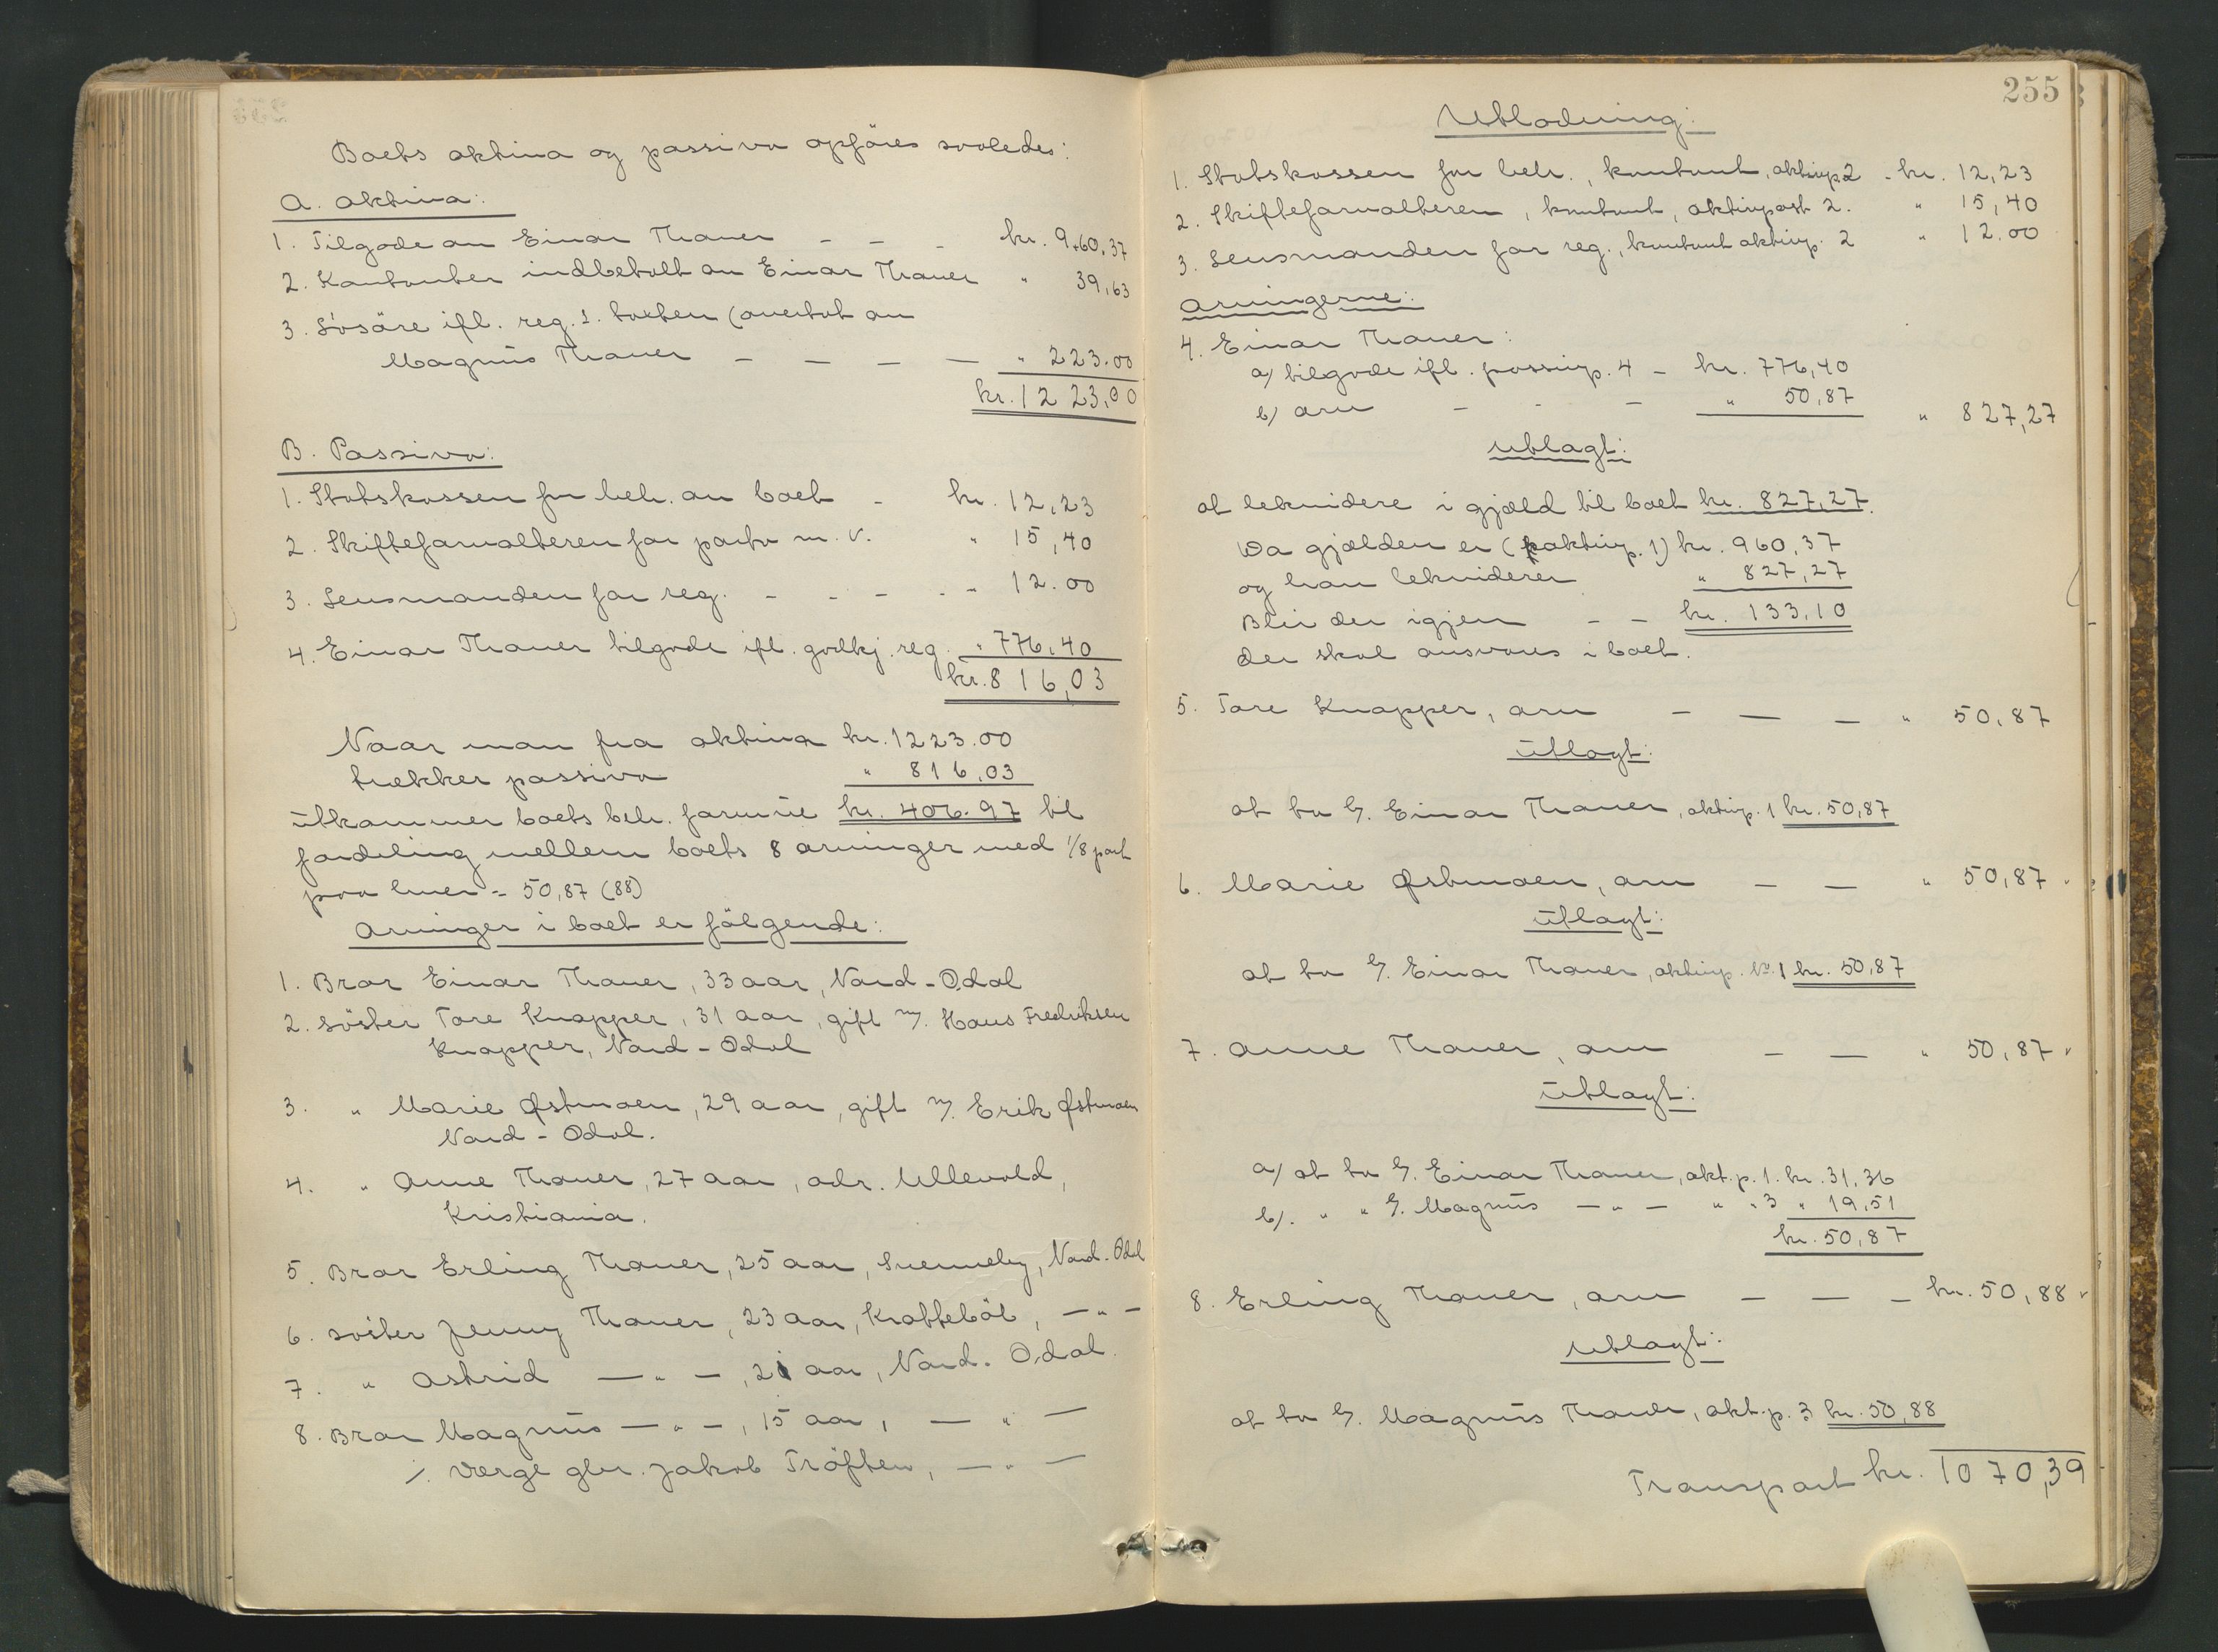 Boets aktiva og passiva opføres saaledes:
A. Aktiva:
1. Tilgode av Einar Thauer - - - kr. 960,37
2. Kontanter indbetalt av Einar Thauer " 39,63
3. Løsøre ifl. reg. 1. takten (overtat av
Magnus Thauer - - - - " 223.00
kr. 1223,00
B. Passiva:
1. Statskassen for beh. av boet - kr. 12,23
2. Skifteforvalteren for porto m. v. " 15,40
3. Lensmanden for reg. - - - - " 12.00
4. Einar Thauer tilgode ifl. godkj. reg. " 776,40
kr. 816,03
Naar man fra aktiva kr. 1223.00
trækker passiva " 816,03
utkommer boets beh. formue kr. 406.97 til
fordeling mellem boets 8 arvinger med 1/8 part
paa hver = 50,87 (88)
Arvinger i boet er følgende:
1. Bror Einar Thauer, 33 aar, Nord-Odal
2. Søster Tore Knapper, 31 aar, gift m/. Hans Fredriksen
Knapper, Nord-Odal
3. " Marie Østmoen, 29 aar, gift m/. Erik Østmoen
Nord-Odal.
4. " Anne Thauer, 27 aar, adr. Ullevold,
Kristiania.
5. Bror Erling Thauer, 25 aar, Svenneby, Nord-Odal
6. Søster Jenny Thauer, 23 aar, Krattebøl, - " -
7. " Astrid - " -, 21 aar, Nord-Odal.
8. Bror Magnus - " -, 15 aar, - " -
/. Værge gbr. Jakob Trøften, - " -
255
Utlodning:
1. Statskassen for beh., kontant, aktivp. 2 - kr. 12,23
2. Skifteforvalteren, kontant, aktivpost 2. " 15,40
3. Lensmanden for reg., kontant aktivp. 2 " 12.00
Arvingerne:
4. Einar Thauer:
a/ tilgode ifl. passivp. 4 - kr. 776,40
b/ arv - - - " 50,87 " 827,27
Utlagt:
at lekvidere i gjæld til boet kr. 827,27.
Da gjælden er (aktivp. 1) kr. 960,37
og han lekviderer " 827,27
Blir der igjen - - kr. 133,10
der skal ansvares i boet.
5. Tore Knapper, arv - - - " 50,87
Utlagt:
at ta h/. Einar Thauer, aktivp. 1 kr. 50,87
6. Marie Østmoen, arv - - " 50,87
Utlagt:
at ta h/. Einar Thauer, aktivp. No. 1 kr. 50,87
7. Anne Thauer, arv - - " 50,87
Utlagt:
a/ at ta h/. Einar Thauer, akt.p. 1. kr. 31,36
b/. " " h/. Magnus - " - " " 3 " 19,51
kr. 50,87
8. Erling Thauer, arv - - - kr. 50,88
Utlagt:
at ta h/. Magnus Thauer, akt.p. 3 kr. 50,88
Transport kr. 1070,39